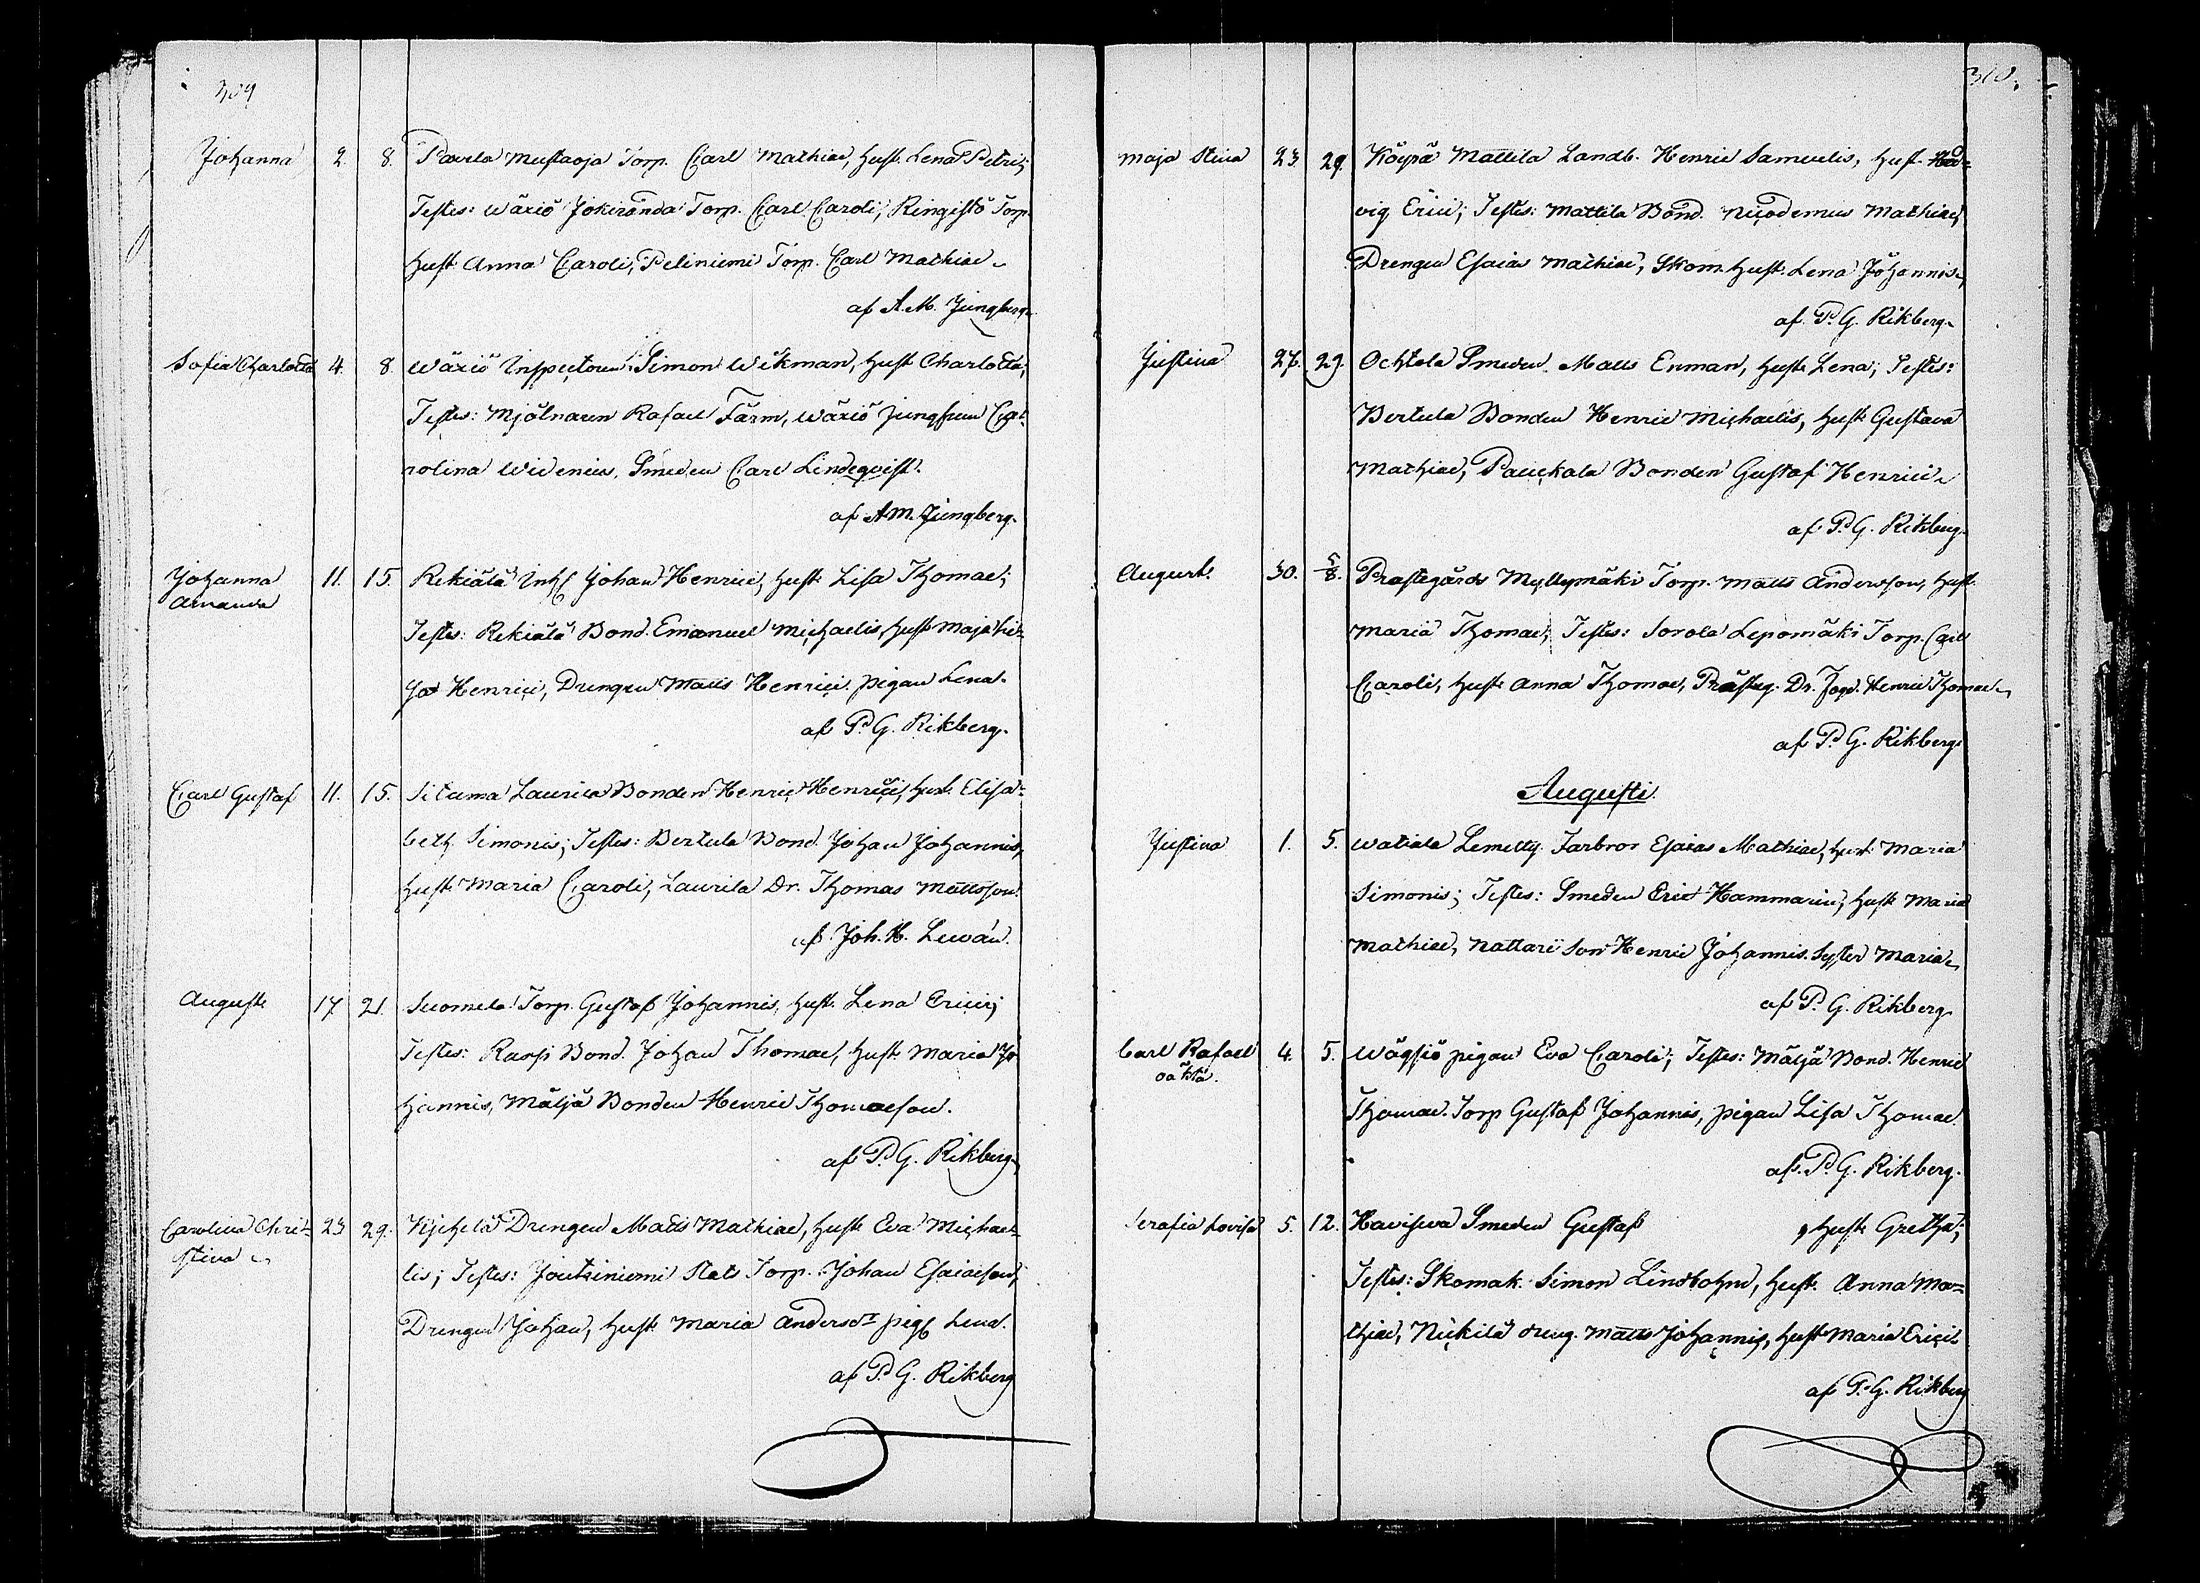 309
Johanna 2. 8. Pavola Mustaoja Torp. Carl Mathiae, Hust. Lena Petri;
Testes: Wäxiö Jokiranda Torp. Carl Caroli, Ringistö Torp.
Hust. Anna Caroli, Peliniemi Torp. Carl Mathiae
af A. M. Ljungberg.
Sofia Charlotta 4. 8. Wäxiö Inspectoren Simon Wikman, Hust Charlotta;
Testes: Mjölnaren Rafael Färm, Wäxiö Jungfrun Ca-
rolina Widenius, Smeden Carl Lindeqvist.
af A. M. Ljungberg.
Johanna 11. 15. Rekiälä Inh Johan Henrici, Hust. Lisa Thomae;
Amanda
Testes: Rekiälä Bond. Emanuel Michaelis, Hust Maja
Henrici, Drengen Matts Henrici. pigan Lena.
af P. G. Rikberg.
Carl Gustaf 11. 15. Laurila Bonden Henric Henrici, Hust. Elisa-
beth Simonis; Testes: Bertula Bond. Johan Johannis,
Hust. Maria Caroli, Laurila Dr. Thomas Mattsson.
af Joh. H. Lewán.
August 17 21 Suomela Torp. Gustaf Johannis, Hust. Lena Erici;
Testes: Bond. Johan Thomae, Hust Maria Jo-
hannis, Mäljä Bonden Henric Thomaeson.
af P. G. Rikberg.
Carolina Chri- 23 29. Drengen Matts Mathiae, Hust Eva Michae-
stina
lis; Testes: Joutsiniemi Stats Torp. Johan Esaiaeson,
Drengen Johan, Hust Maria Andersdr pig Lena.
af P. G. Rikberg
310.
Maja Stina 23. 29. Köypä Mattila Landb. Henric Samuelis, Hust. Hed-
vig Erici; Testes: Mattila Bond. Nicodemus Mathiae,
Drengen Esaias Mathiae, Skom. Hust. Lena Johannis
af P. G. Rikberg
Justina 27. 29. Ochtola Smeden Matts Enman, Hust. Lena; Testes:
Bertula Bonden Henric Michaelis, Hust Gustava
Mathiae, Bonden Gustaf Henrici
af P. G. Rikberg.
August. 30. 5/8. Prästegårds Myllymäki Torp. Matts Andersson, Hust.
Maria Thomae; Testes: Sorola Lepomäki Torp. Carl
Caroli, Hust Anna Thomae, Prästeg. Dr. Henric Thomae
af P. G. Rikberg.
Augusti.
Justina 1. 5. Watiala Lemetty Farbror Esaias Mathiae, Hust. Maria
Simonis; Testes: Smeden Eric Hammarin, Hust Maria
Mathiae, Nattari Son Henric Johannis. Syster Maria
af P. G. Rikberg
Carl Rafael 4. 5. Wägsiö pigan Eva Caroli; Testes: Mäljä Bond. Henric
oäkta.
Thomae. Torp Gustaf Johannis, pigan Lisa Thomae.
af P. G. Rikberg.
Serafia Lovisa 5. 12. Havisova Smeden Gustaf , Hust Gretha;
Testes: Skomak. Simon Lindbohm, Hust. Anna Ma-
thiae, Nickilä dreng. Matts Johannis, Hust Maria Ericis
af P. G. Rikberg